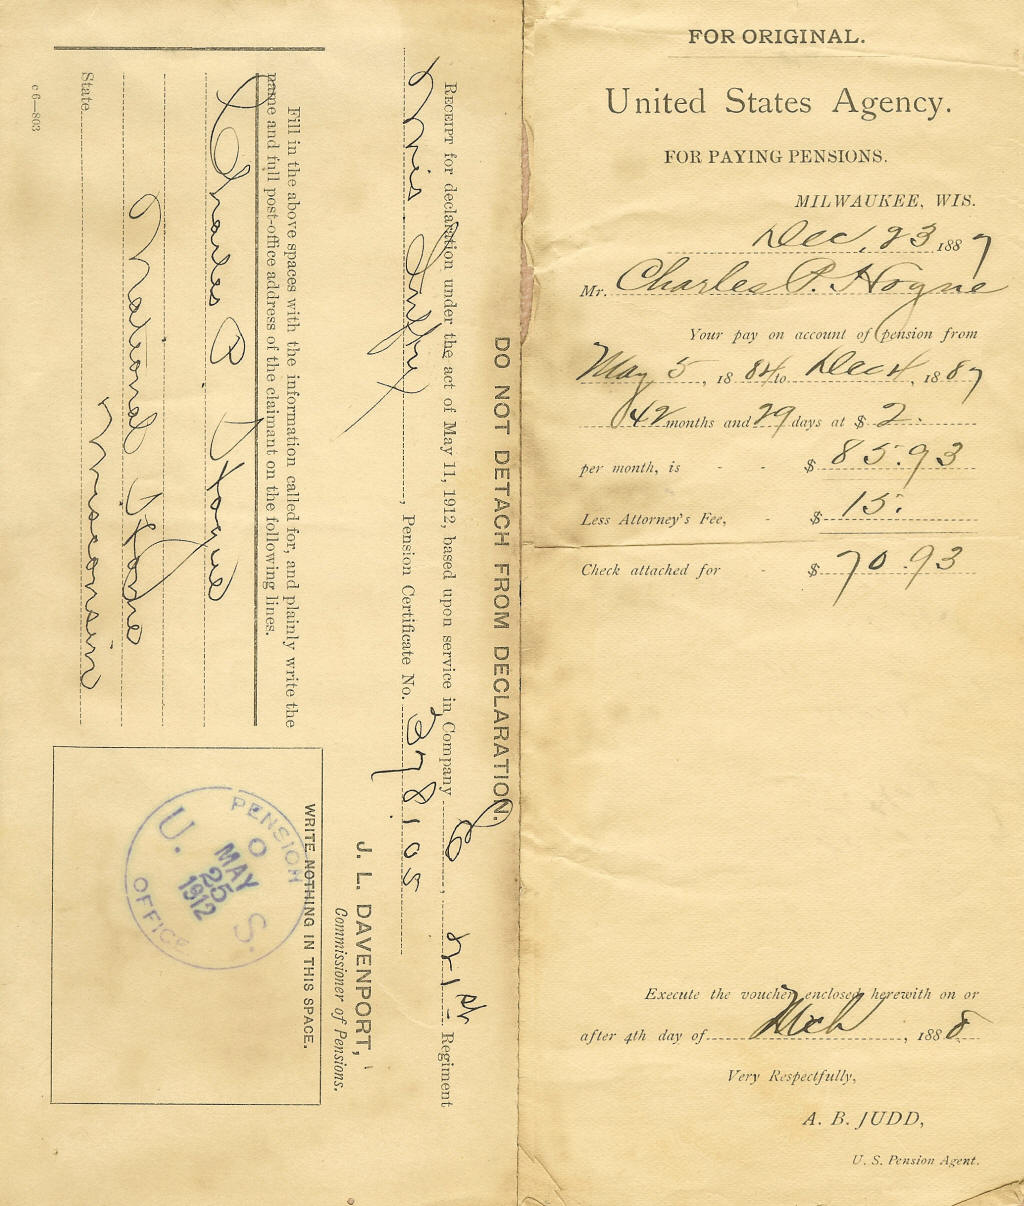 FOR ORIGINAL.
United States Agency.
FOR PAYING PENSIONS.
MILWAUKEE, WIS.
Dec. 23 1887
Mr. Charles P. Hogue
Your pay on account of pension from
May 5, 1884 to Dec 4, 1887
42 months and 29 days at $ 2.
per month, is - - $ 85.93
Less Attorney's Fee, - $ 15.
Check attached for - $ 70.93
Execute the voucher enclosed herewith on or
after 4th day of Mch, 1888
Very Respectfully,
A. B. JUDD,
U. S. Pension Agent.
DO NOT DETACH FROM DECLARATION.
RECEIPT for declaration under the act of May 11, 1912, based upon service in Company G, 21st Regiment
Wis Inf, Pension Certificate No. 378105
J. L. DAVENPORT,
Commissioner of Pensions.
Fill in the above spaces with the information called for, and plainly write the
name and full post-office address of the claimant on the following lines.
Charles P Hogue
National Home
Wisconsin
State
c 6—803
WRITE NOTHING IN THIS SPACE.
U. S.
PENSION OFFICE
MAY
25
1912